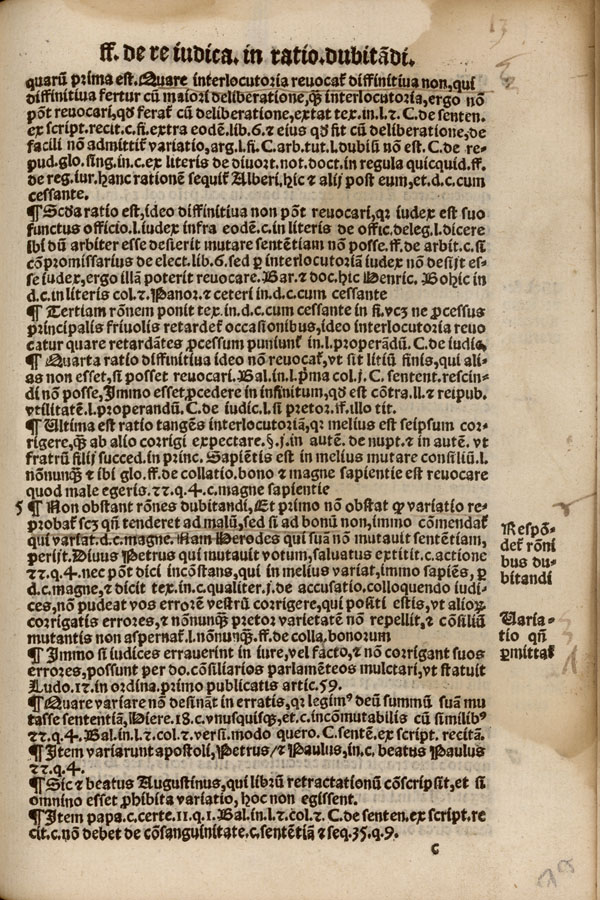 ff. de re iudica. in ratio. dubitãdi.
quarũ prima est. Quare interlocutoria reuocaꝶ diffinitiua non, qui
diffinitiua fertur cũ maiori deliberatione, q̃ꝫ interlocutoria, ergo nõ
põt reuocari, qđ feraꝶ cũ deliberatione, extat tex. in. l. 2. C. de senten.
ex script. recit. c. fi. extra eodẽ. lib. 6. ⁊ eius qđ fit cũ deliberatione, de
facili nõ admittiꝶ variatio, arg. l. fi. C. arb. tut. l. dubiũ nõ est. C. de re-
pud. glo. sing. in. c. ex literis de diuort. not. doct. in regula quicquid. ff.
de reg. iur. hanc rationẽ sequiꝶ Alberi, hic ⁊ alij post eum, et. d. c. cum
cessante.
¶ Scđa ratio est, ideo diffinitiua non põt reuocari, qꝛ iudex est suo
functus officio. l. iudex infra eodẽ. c. in literis de offic. deleg. l. dicere
ibi dũ arbiter esse desierit mutare sentẽtiam nõ posse. ff. de arbit. c. si
cõpromissarius de elect. lib. 6. sed ꝑ interlocutoriã iudex nõ desijt es-
se iudex, ergo illã poterit reuocare. Bar. ⁊ doc. hic Henric. Bohic in
d. c. in literis col. 2. Panor. ⁊ ceteri in. d. c. cum cessante
¶ Tertiam rõnem ponit tex. in. d. c. cum cessante in fi. vcꝫ ne ꝓcessus
principalis friuolis retardeꝶ occasionibus, ideo interlocutoria reuo
catur quare retardãtes ꝓcessum puniunꝶ in. l. properãdũ. C. de iudi.
¶ Quarta ratio diffinitiua ideo nõ reuocaꝶ, vt sit litiũ finis, qui ali-
as non esset, si posset reuocari. Bal. in. l. p̃ma col. j. C. sentent. rescin-
di nõ posse, Immo esset ꝓcedere in infinitum, qđ est cõtra. ll. ⁊ reipub.
vtilitatẽ. l. properandũ. C. de iudic. l. si pretor. ff. illo tit.
¶ Ultima est ratio tangẽs interlocutoriã, qꝛ melius est seipsum cor-
rigere, q̃ꝫ ab alio corrigi expectare. §. j. in autẽ. de nupt. ⁊ in autẽ. vt
fratrũ filij succed. in princ. Sapiẽtis est in melius mutare consiliũ. l.
nõnunq̃ꝫ ⁊ ibi glo. ff. de collatio. bono ⁊ magne sapientie est reuocare
quod male egeris. 22. q. 4. c. magne sapientie
5 ¶ Non obstant rõnes dubitandi, Et primo nõ obstat qꝫ variatio re-
probaꝶ scꝫ qñ tenderet ad malũ, sed si ad bonũ non, immo cõmendaꝶ
qui variat. d. c. magne. Nam Herodes qui suã nõ mutauit sentẽtiam,
perijt. Diuus Petrus qui mutauit votum, saluatus extitit. c. actione
22. q. 4. nec põt dici incõstans, qui in melius variat, immo sapiẽs, ꝑ
d. c. magne, ⁊ dicit tex. in. c. qualiter. j. de accusatio. colloquendo iudi-
ces, nõ pudeat vos errorẽ vestrũ corrigere, qui positi estis, vt alioꝝ
corrigatis errores, ⁊ nõnunq̃ꝫ pretor varietatẽ nõ repellit, ⁊ cõsiliũ
mutantis non aspernaꝶ. l. nõnunq̃ꝫ. ff. de colla. bonorum
¶ Immo si iudices errauerint in iure, vel facto, ⁊ nõ corrigant suos
errores, possunt per do. cõsiliarios parlamẽteos mulctari, vt statuit
Ludo. 12. in ordina. primo publicatis artic. 59.
¶ Quare variare nõ desinãt in erratis, qꝛ legimꝰ deũ summũ suã mu
tasse sententiã, Hiere. 18. c. vnusquisqꝫ, et. c. incõmutabilis cũ similibꝰ
22. q. 4. Bal. in. l. 2. col. 2. versi. modo quero. C. sentẽ. ex script. recitã.
¶ Item variarunt apostoli, Petrus/⁊ Paulus, in. c. beatus Paulus
22. q. 4.
¶ Sic ⁊ beatus Augustinus, qui librũ retractationũ cõscripsit, et si
omnino esset ꝓhibita variatio, hoc non egissent.
¶ Item papa. c. certe. 11. q. 1. Bal. in. l. 2. col. 2. C. de senten. ex script. re
cit. c. nõ debet de cõsanguinitate. c. sentẽtiã ⁊ seq. 35. q. 9.
c
Respõ-
deꝶ rõni
bus du-
bitandi
Uaria-
tio qñ
ꝑmittaꝶ
13